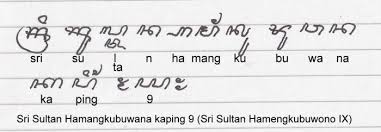 ꦱꦿꦶ ꦱꦸꦭ꧀ꦠꦤ꧀ꦲꦩꦁꦏꦸꦧꦸꦮꦤ
sri su l ta n ha mang ku bu wa na
ꦏꦥꦶꦁ꧇꧙꧇
ka ping 9
Sri Sultan Hamangkubuwana kaping 9 (Sri Sultan Hamengkubuwono IX)